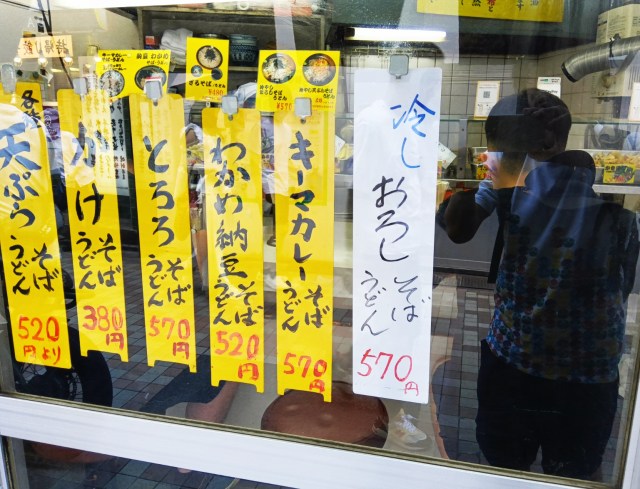 各種
天ぷら
そば
うどん
520
円より
かけ
そば
うどん
380
円
とろろ
そば
うどん
570
円
わかめ納豆
そば
うどん
520
円
キーマカレー
そば
うどん
570
円
冷し
おろし
そば
うどん
570
円